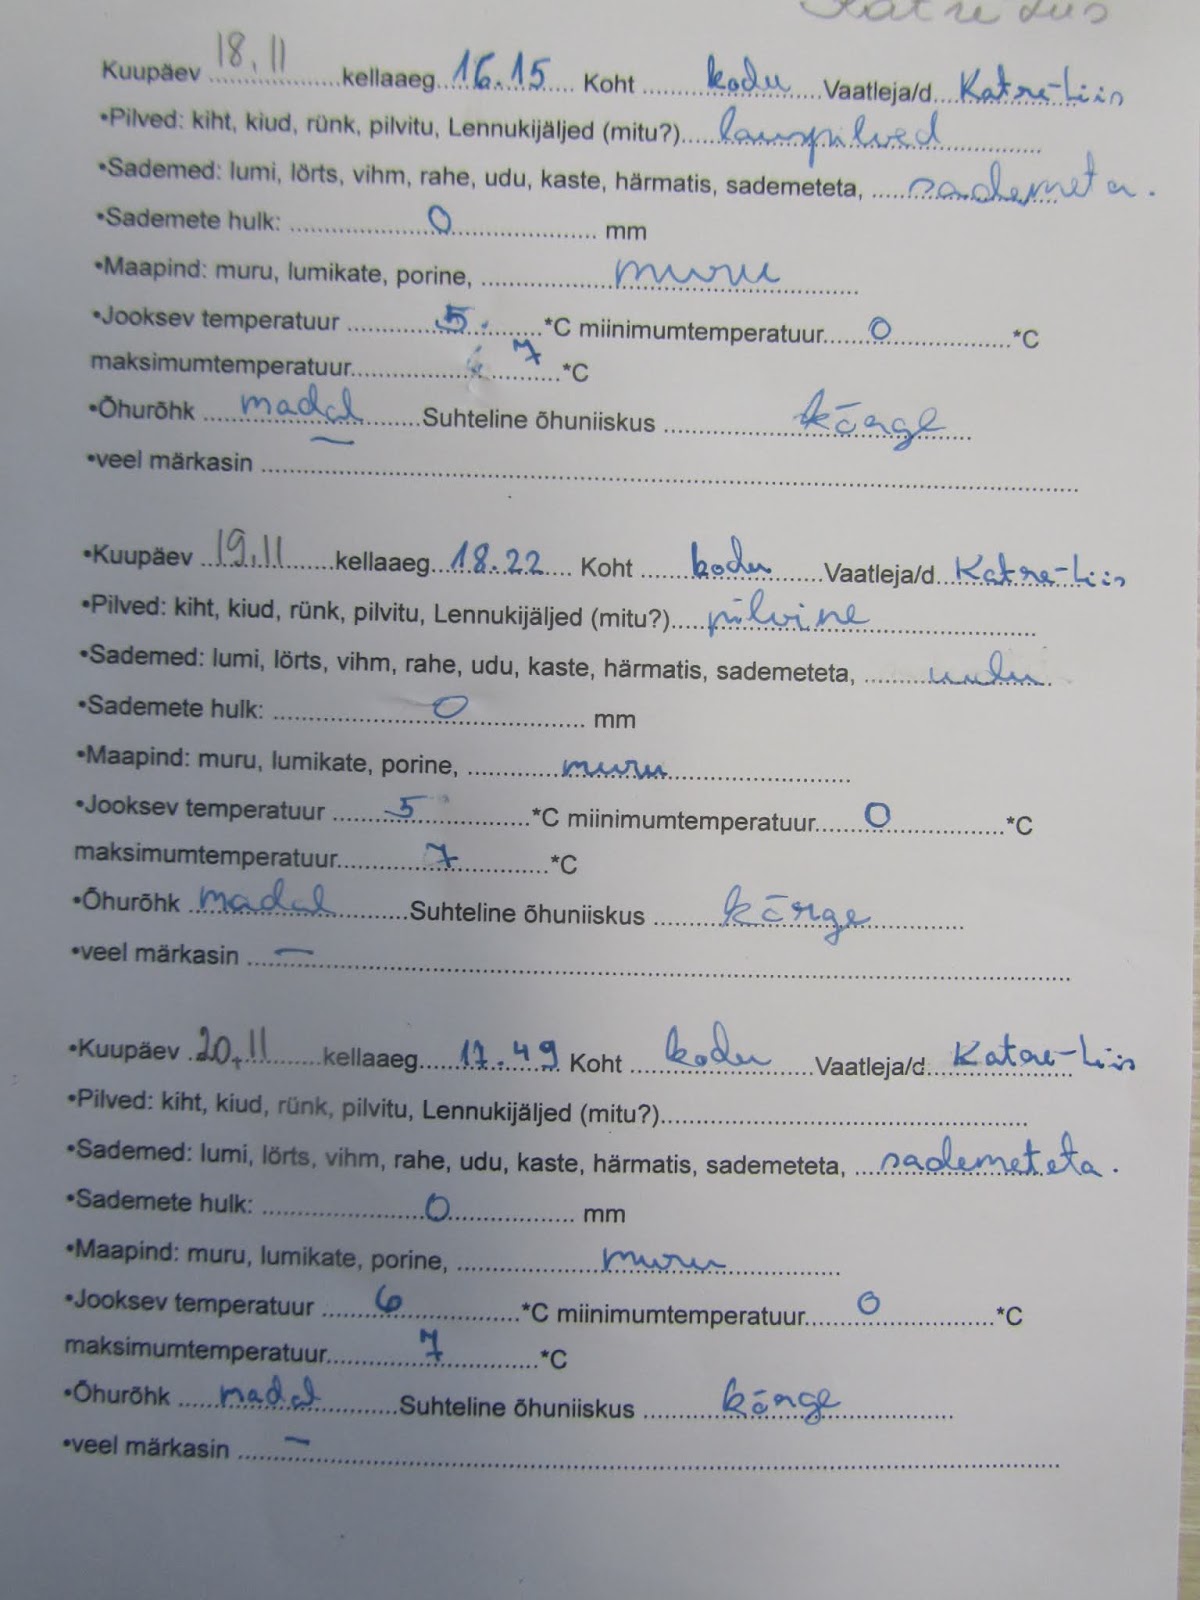 Kuupäev 18.11 kellaaeg 16.15 Koht kodu Vaatleja/d Katre-Liis
•Pilved: kiht, kiud, rünk, pilvitu, Lennukijäljed (mitu?) lauspilved
•Sademed: lumi, lörts, vihm, rahe, udu, kaste, härmatis, sademeteta, sademeta.
•Sademete hulk: 0 mm
•Maapind: muru, lumikate, porine, muru
•Jooksev temperatuur 5. *C miinimumtemperatuur 0 *C
maksimumtemperatuur 7 *C
•Õhurõhk madal Suhteline õhuniiskus kõrge
•veel märkasin –
•Kuupäev 19.11 kellaaeg 18.22 Koht kodu Vaatleja/d Katre-Liis
•Pilved: kiht, kiud, rünk, pilvitu, Lennukijäljed (mitu?) pilvine
•Sademed: lumi, lörts, vihm, rahe, udu, kaste, härmatis, sademeteta, uudu.
•Sademete hulk: 0 mm
•Maapind: muru, lumikate, porine, muru
•Jooksev temperatuur 5 *C miinimumtemperatuur 0 *C
maksimumtemperatuur 7 *C
•Õhurõhk madal Suhteline õhuniiskus kõrge
•veel märkasin –
•Kuupäev 20.11 kellaaeg 17.49 Koht kodu Vaatleja/d Katre-Liis
•Pilved: kiht, kiud, rünk, pilvitu, Lennukijäljed (mitu?)
•Sademed: lumi, lörts, vihm, rahe, udu, kaste, härmatis, sademeteta, sademeteta.
•Sademete hulk: 0 mm
•Maapind: muru, lumikate, porine, muru
•Jooksev temperatuur 6 *C miinimumtemperatuur 0 *C
maksimumtemperatuur 7 *C
•Õhurõhk madal Suhteline õhuniiskus kõrge
•veel märkasin –